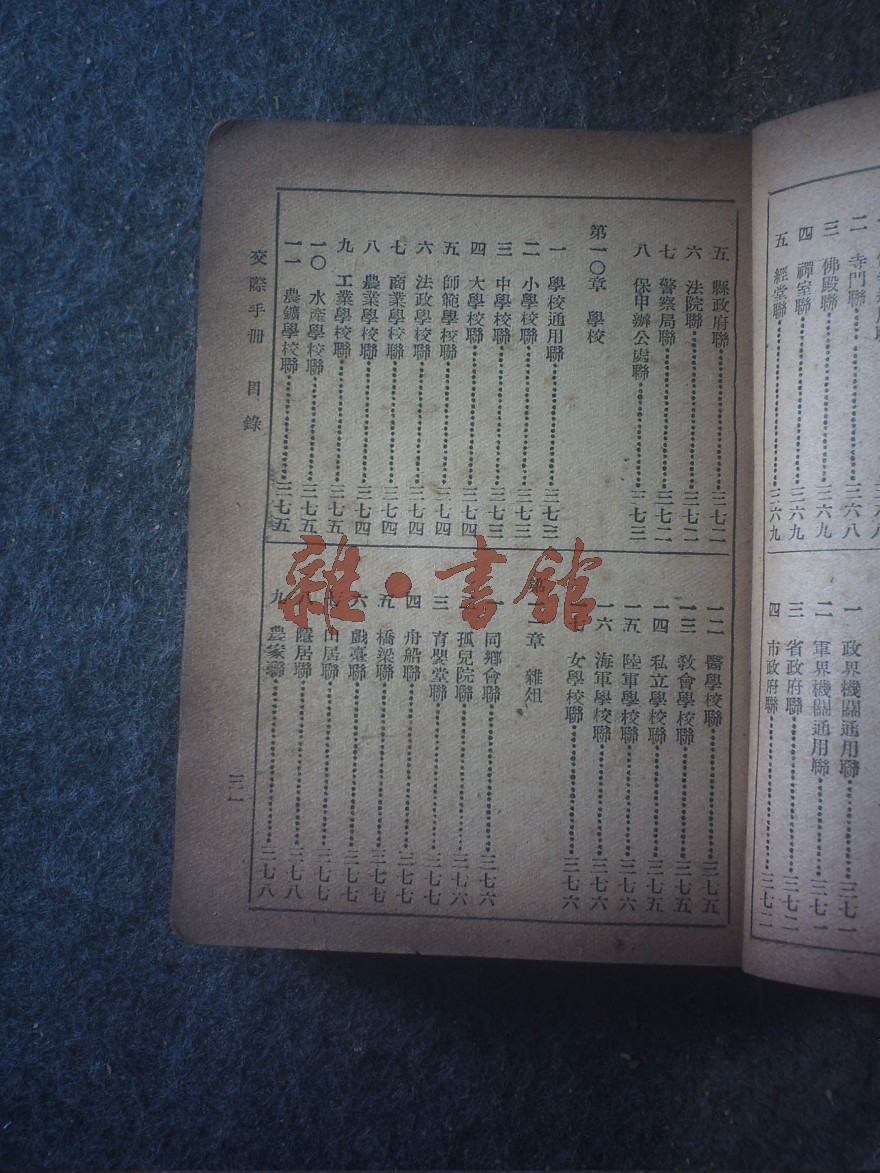 二 寺門聯……三六八
三 佛殿聯……三六九
四 禪室聯……三六九
五 經堂聯……三六九
一 政界機關通用聯……三七一
二 軍界機關通用聯……三七一
三 省政府聯……三七二
四 市政府聯……三七二
五 縣政府聯……三七二
六 法院聯……三七二
七 警察局聯……三七二
八 保甲辦公處聯……三七三
第一〇章 學校
一 學校通用聯……三七三
二 小學校聯……三七三
三 中學校聯……三七三
四 大學校聯……三七四
五 師範學校聯……三七四
六 法政學校聯……三七四
七 商業學校聯……三七四
八 農業學校聯……三七四
九 工業學校聯……三七五
一〇 水產學校聯……三七五
一一 農鑛學校聯……三七五
一二 醫學校聯……三七五
一三 教會學校聯……三七五
一四 私立學校聯……三七五
一五 陸軍學校聯……三七六
一六 海軍學校聯……三七六
一七 女學校聯……三七六
第一一章 雜俎
一 同鄉會聯……三七六
二 孤兒院聯……三七六
三 育嬰堂聯……三七七
四 舟船聯……三七七
五 橋梁聯……三七七
六 戲臺聯……三七七
七 山居聯……三七七
八 隱居聯……三七八
九 農家聯……三七八
交際手冊 目錄
三一
雜·書館